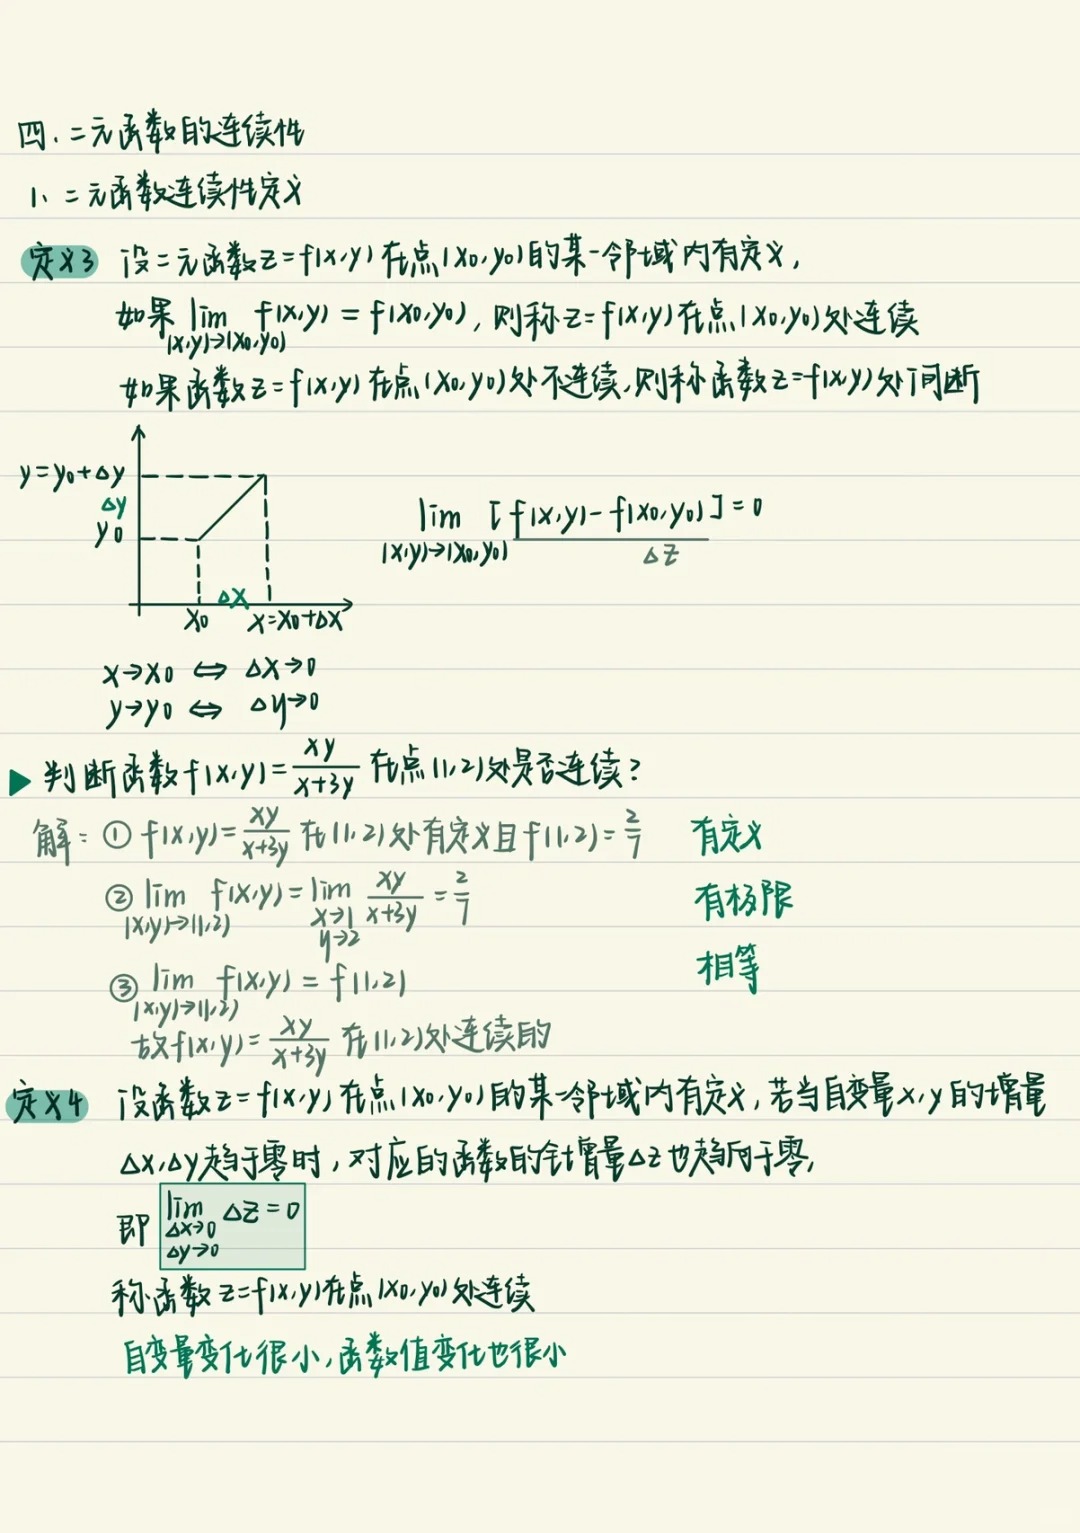 四、二元函数的连续性
1、二元函数连续性定义
定义3 设二元函数z=f(x,y)在点(x₀,y₀)的某一邻域内有定义,
如果 lim f(x,y) = f(x₀,y₀), 则称z=f(x,y)在点(x₀,y₀)处连续
(x,y)→(x₀,y₀)
如果函数z=f(x,y)在点(x₀,y₀)处不连续,则称函数z=f(x,y)处间断
y=y₀+Δy
Δy
y₀
Δx
x₀ x=x₀+Δx
lim [f(x,y)-f(x₀,y₀)]=0
(x,y)→(x₀,y₀) Δz
x→x₀ ⇔ Δx→0
y→y₀ ⇔ Δy→0
▶ 判断函数f(x,y)=xy/(x+3y) 在点(1,2)处是否连续?
解: ① f(x,y)=xy/(x+3y) 在(1,2)处有定义且f(1,2)=2/7 有定义
② lim f(x,y)=lim xy/(x+3y) =2/7 有极限
(x,y)→(1,2) x→1
y→2
③ lim f(x,y) = f(1,2) 相等
(x,y)→(1,2)
故f(x,y)=xy/(x+3y) 在(1,2)处连续的
定义4 设函数z=f(x,y)在点(x₀,y₀)的某一邻域内有定义,若当自变量x,y的增量
Δx,Δy趋于零时,对应的函数的全增量Δz也趋向于零,
即 lim Δz=0
Δx→0
Δy→0
称函数z=f(x,y)在点(x₀,y₀)处连续
自变量变化很小,函数值变化也很小